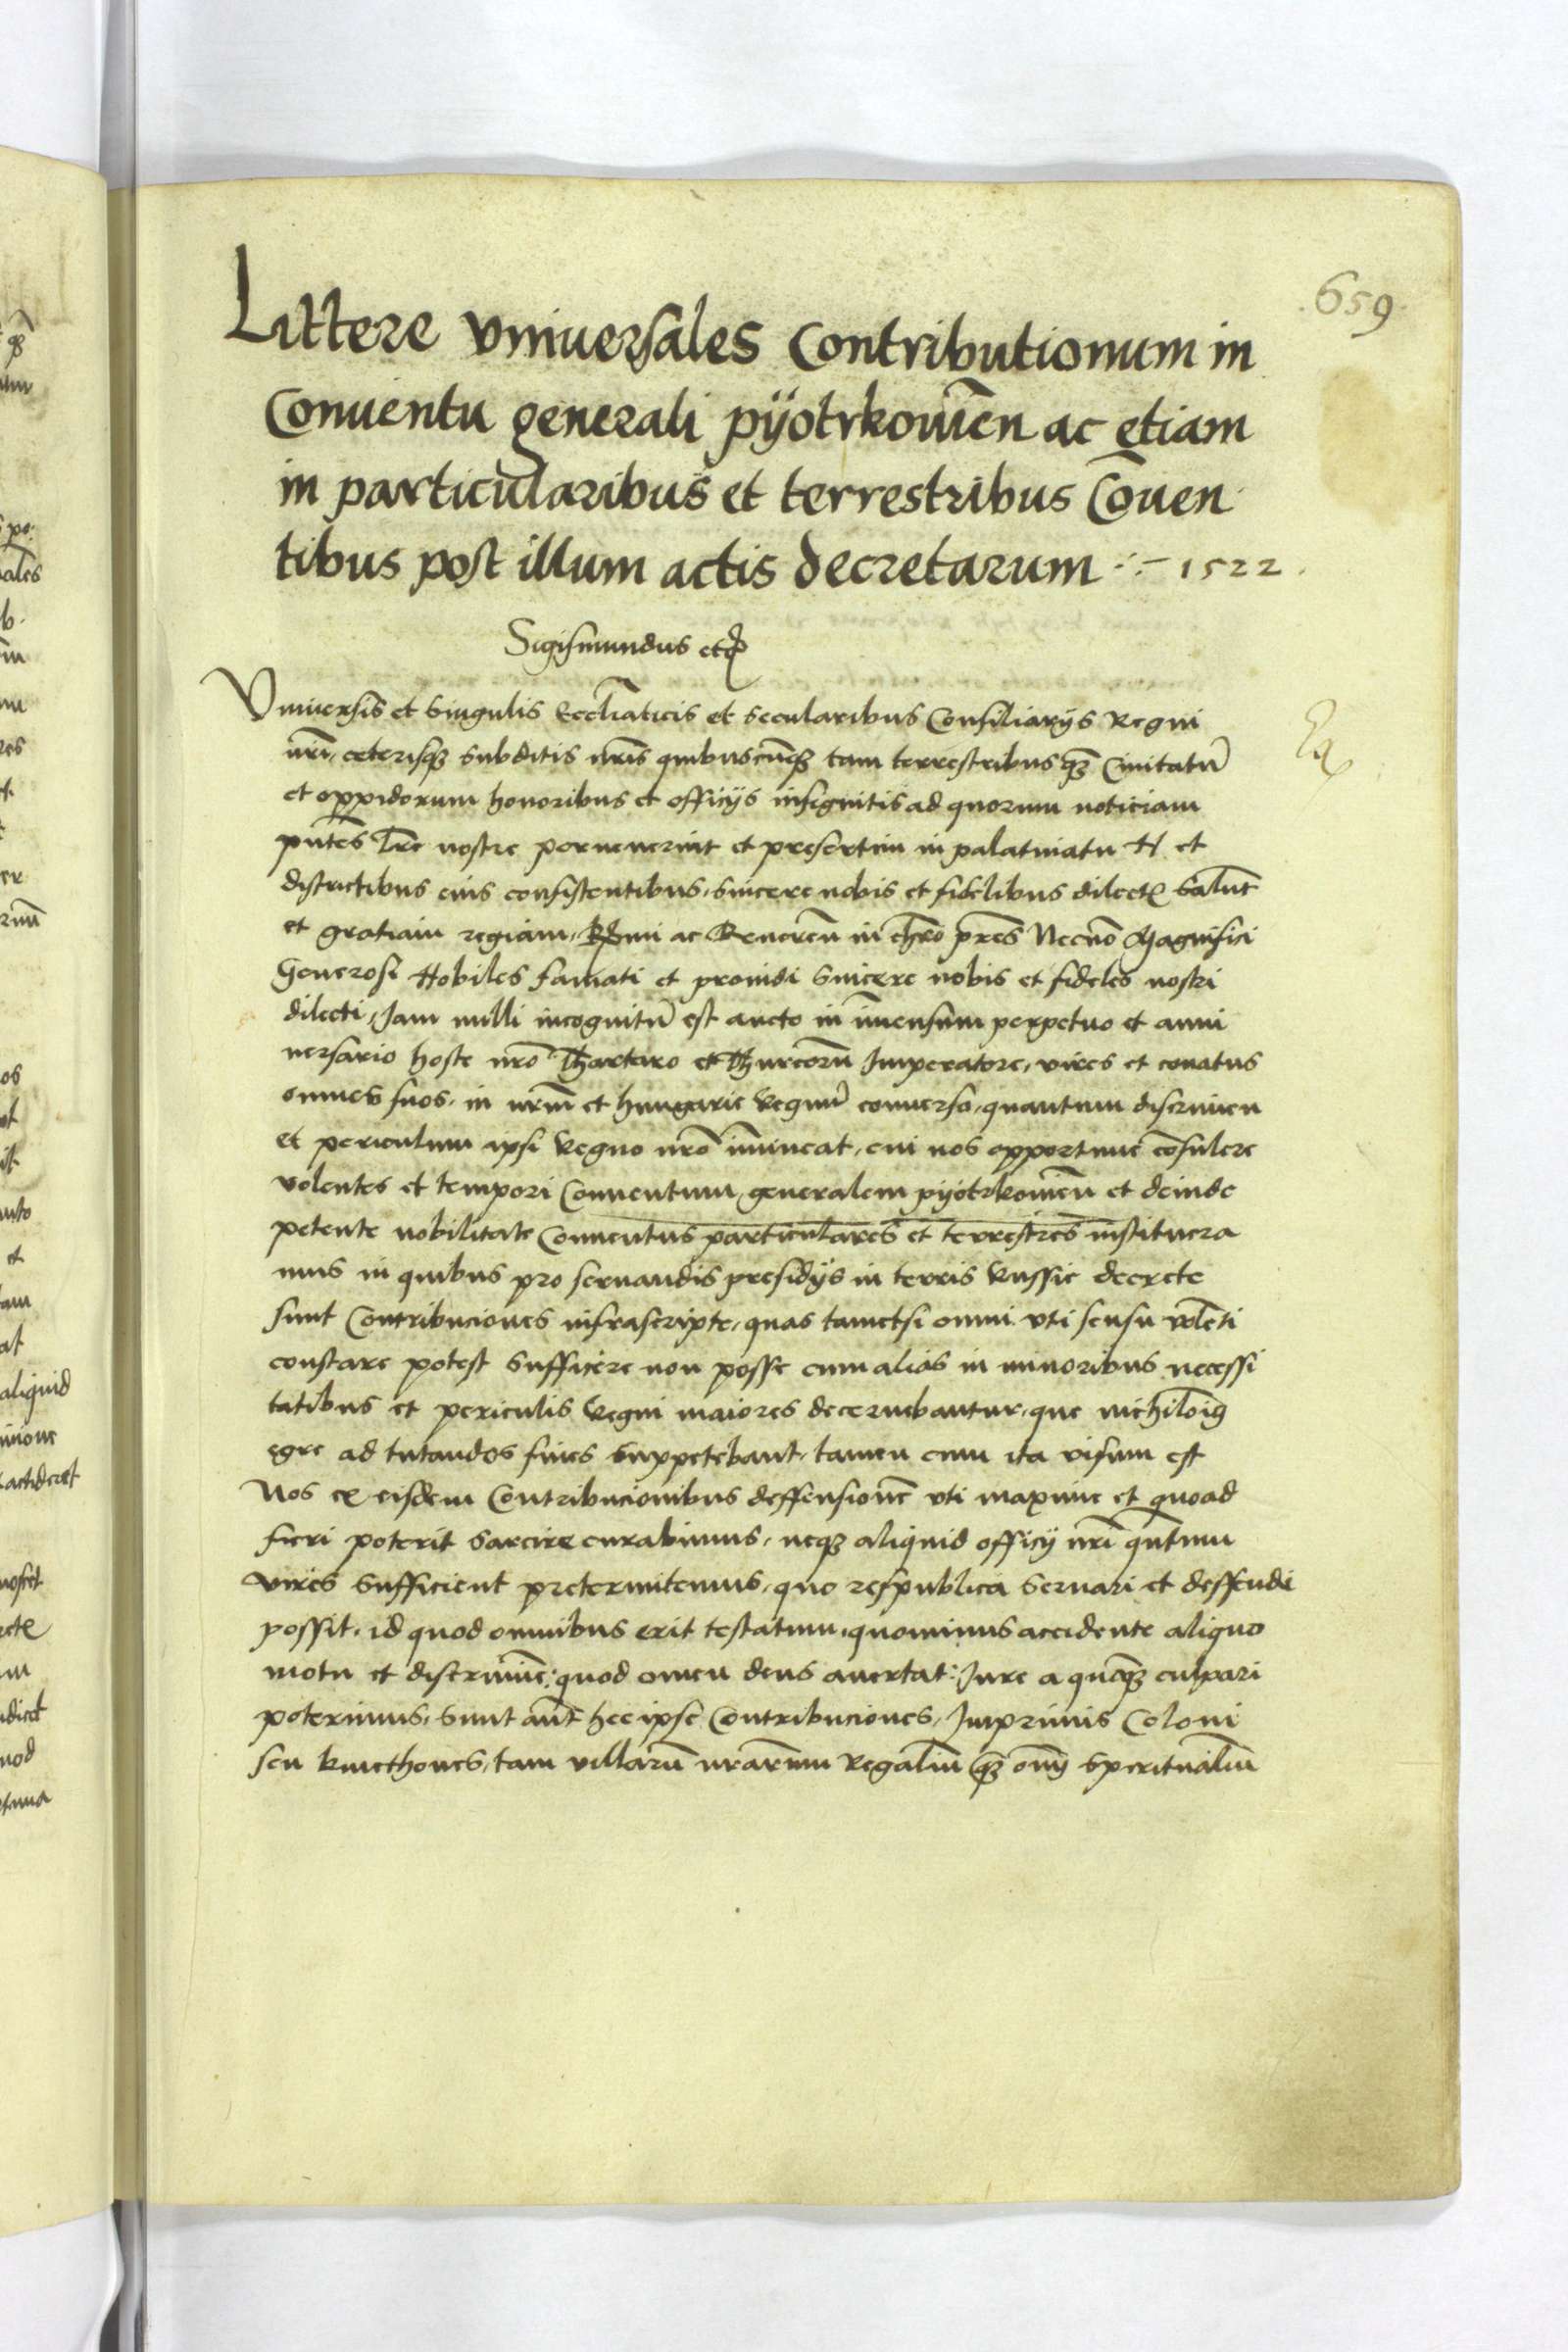 659
Littere vniuersales Contributionum in
Conuentu generali pÿotrkouien̄ ac etiam
in particularibus et terrestribus Cōuen
tibus post illum actis decretarum ·:- 1522.
Sigismundus etc̄
Vniuersis et singulis Eccl̄iaticis et secularibus Consiliarÿs Regni
nr̄i, ceterisqꝫ subditis nr̄is quibuscūqꝫ tam terrestribus qꝫ Ciuitatū
et oppidorum honoribus et officÿs insignitis ad quorum noticiam
pn̄tes Lr̄e nostre peruenerint et presertim in palatinatu N et
districtibus eius consistentibus, sincere nobis et fidelibus dilect̄ Salutē
et gratiam regiam, Rm̄i ac Reueren̄ in chr̄o pr̄es Necnō Magnifici
Generosi Nobiles famati et prouidi sincere nobis et fideles nostri
dilecti, Jam nulli incognitū est aucto in īmensum perpetuo et anni
uersario hoste nr̄o Thartaro et Thurcorū Imperatore, vires et conatus
omnes suos, in nr̄m et hungarie Regnū conuerso, quantum discrimen
et periculum ipsi Regno nr̄o īmineat, cui nos opportune cōsulere
volentes et tempori Conuentum generalem pÿotrkouien̄ et deinde
petente nobilitate Conuentus particulares et terrestres institucra
mus in quibus pro seruandis presidÿs in terris Russie decrete
sunt Contribuciones infrascripte, quas tametsi omni vti sensu volēti
constare potest sufficere non posse cum alias in minoribus necessi
tatibus et periculis Regni maiores decernebantur, que nichilōig
egre ad tutandos fines suppetebant, tamen cum ita visum est
Nos ex eisdem Contribucionibus deffensionē vti maxime et quoad
fieri poterit sarcire curabimus, neqꝫ aliquid officÿ nr̄i qn̄tum
vires sufficient pretermitemus, quo respublica seruari et deffendi
possit, id quod omnibus erit testatum, quominus accidente aliquo
motu et discriminē: quod omen deus auertat: Jure a quōqꝫ culpari
poterimus, Sunt aūt hee ipse Contribuciones, Imprimis Coloni
seu kmethones, tam villarū nr̄arum Regaliū qꝫ om̄i speritualiū